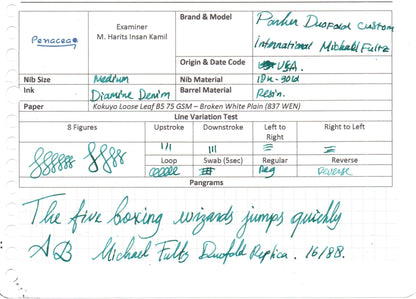 Penaceae
Examiner
M. Harits Insan Kamil
Brand & Model
Parker Duofold Custom
International Michael Fultz
Origin & Date Code
USA.
Nib Size
Medium
Nib Material
18K-gold
Ink
Diamine Denim
Barrel Material
Resin.
Paper
Kokuyo Loose Leaf B5 75 GSM – Broken White Plain (837 WEN)
Line Variation Test
8 Figures
Upstroke
Downstroke
Left to Right
Right to Left
Loop
Swab (5sec)
Regular
Reverse
Reg
Reverse
Pangrams
The five boxing wizards jumps quickly
AB Michael Fultz Duofold Replica. 16/88.